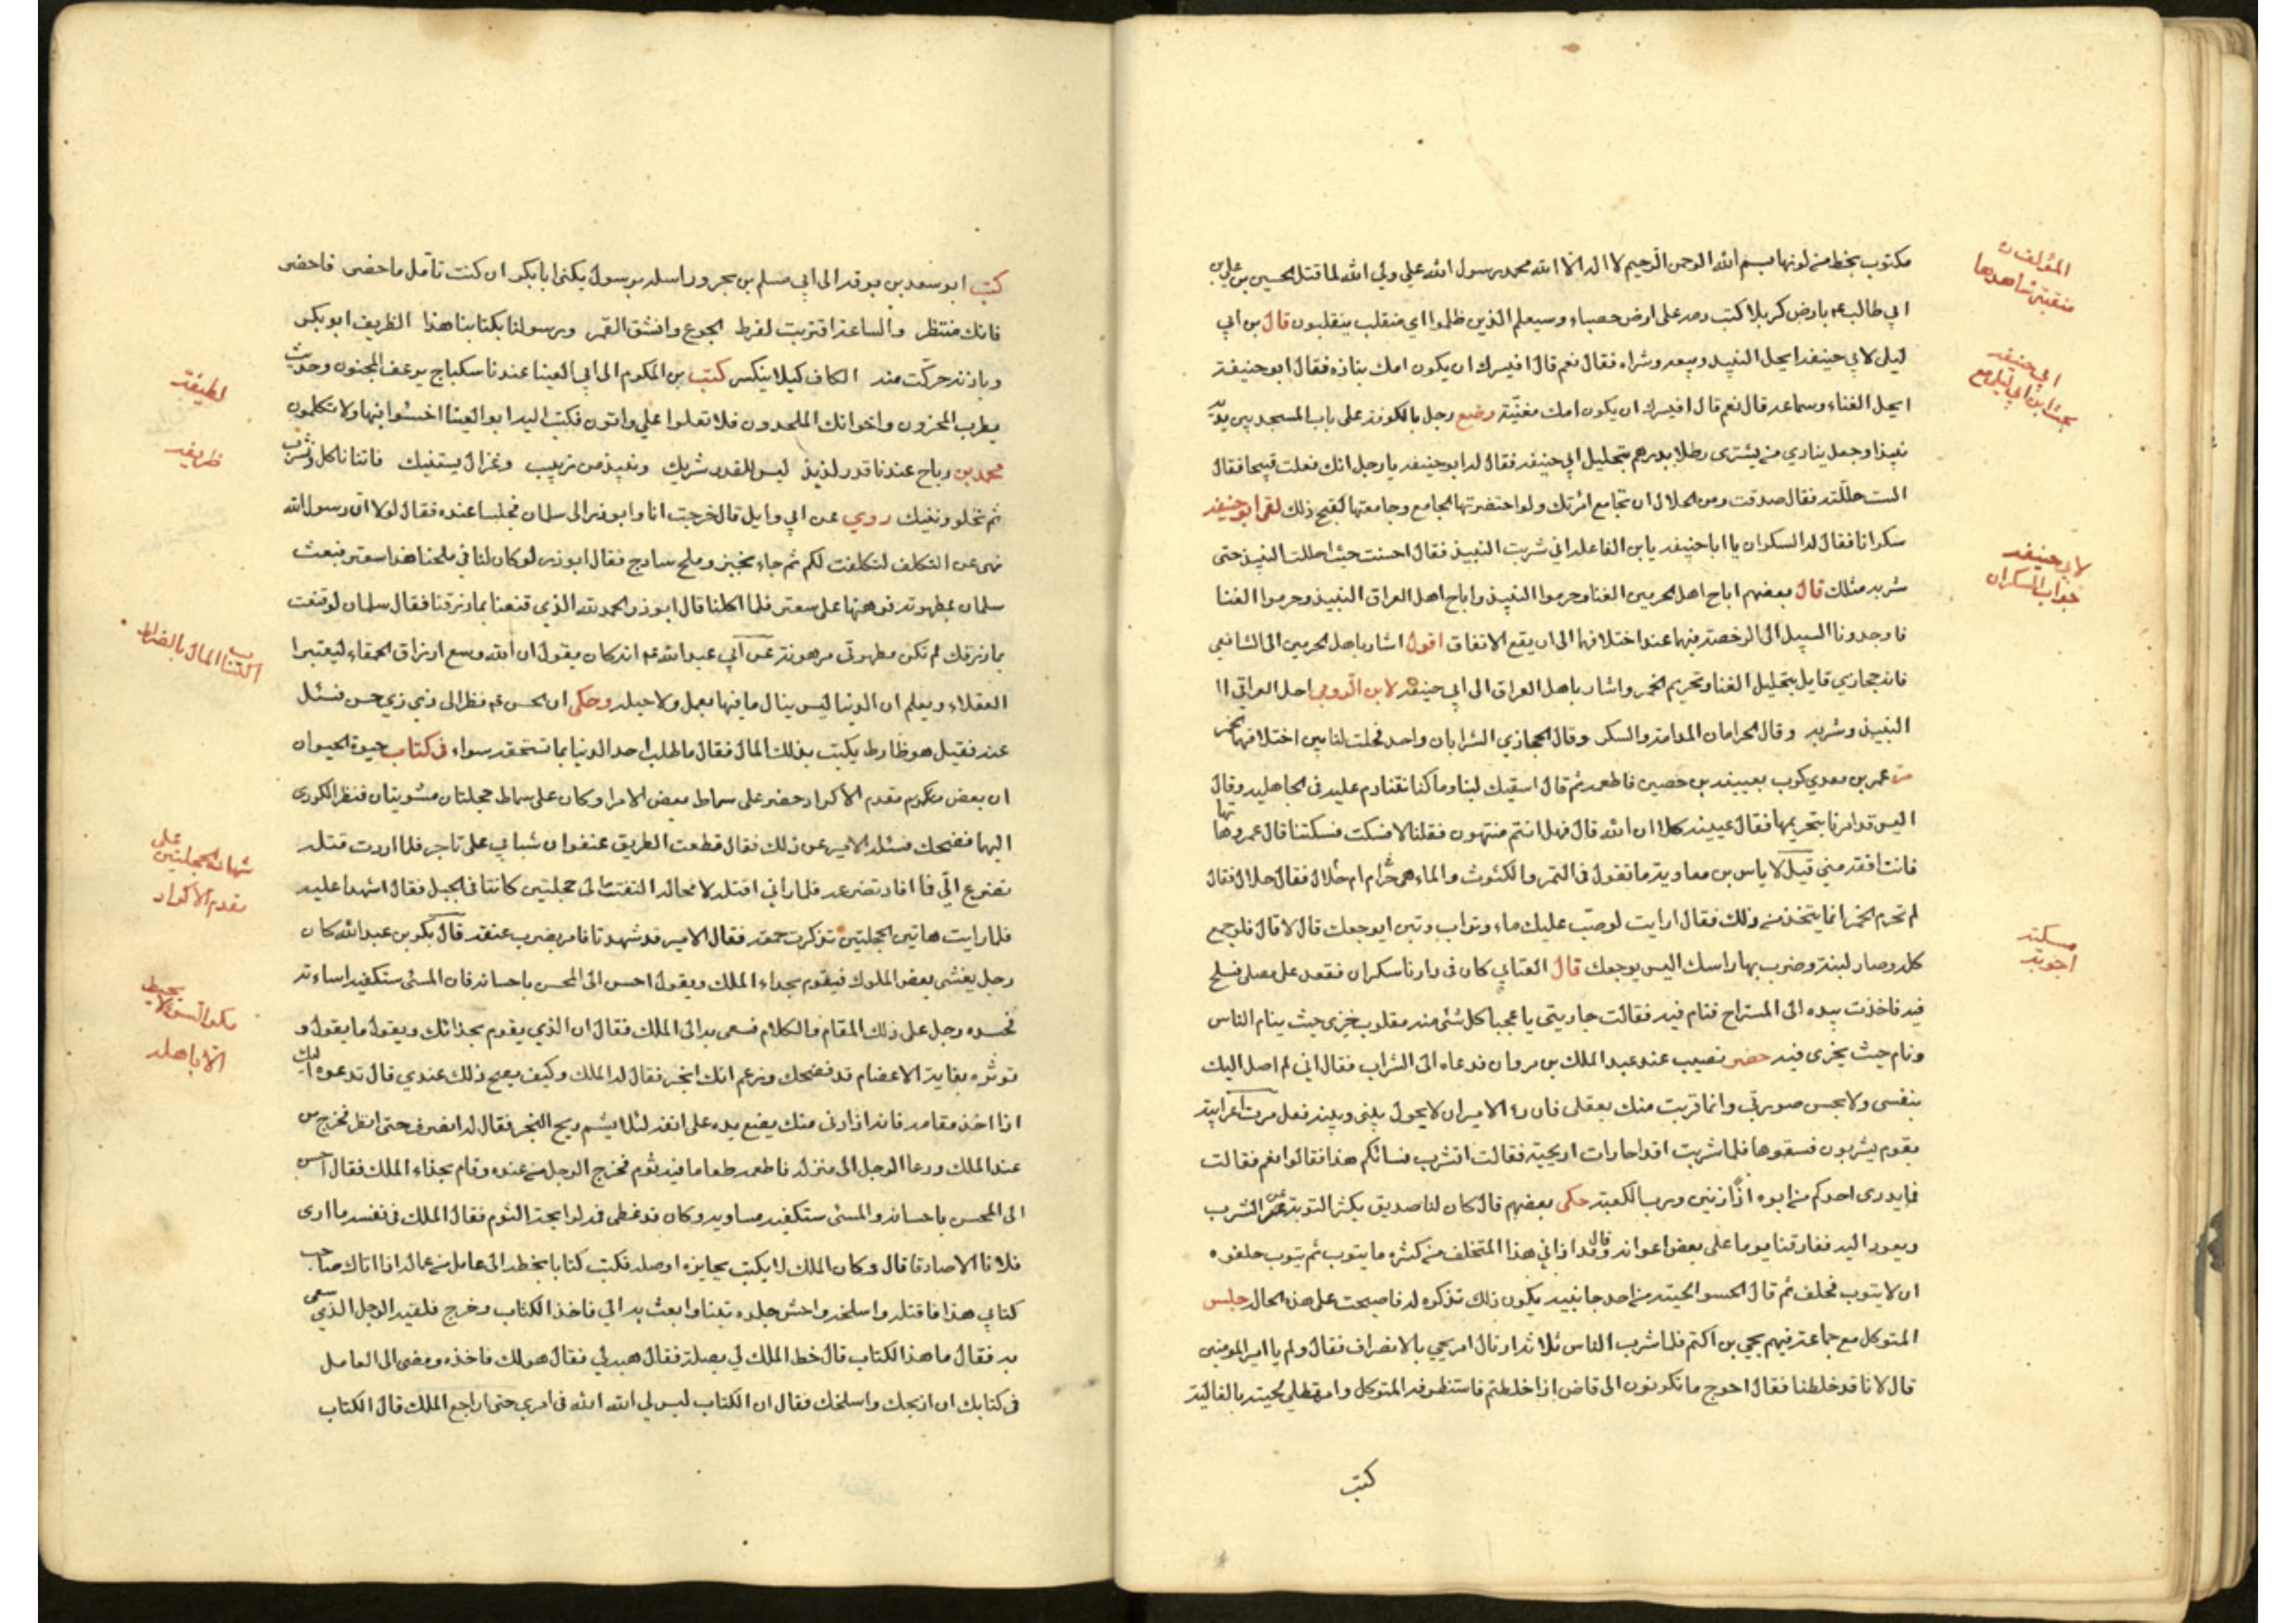 مكتوب بخط من لونها بسم الله الرحمن الرحيم لا اله الا الله محمد رسول الله علي ولي الله لما قتل الحسين بن علي بن
ابي طالب عم بارض كربلا كتب دمه على ارض حصباء وسيعلم الذين ظلموا اي منقلب ينقلبون قال بن ابي
ليلى لابي حنيفه ايحل النبيذ وبيعه وشراه فقال نعم قال افيسرك ان يكون امك نباذه فقال ابو حنيفة
ايحل الغناء وسماعه قال نعم قال افيسرك ان يكون امك مغنيّة وضع رجل بالكوفة على باب المسجد بين يديه
نبيذا وجعل ينادي من يشترى رطلا بدرهم بتحليل ابي حنيفه فقال له ابو حنيفه يا رجل انك فعلت قبيحا فقال
الست حللته فقال صدقت ومن الحلال ان تجامع امرئتك ولو احتضرتها الجامع وجامعتها لقبح ذلك لقى ابو حنيفه
سكرانا فقال له السكران يا ابا حنيفه يا بن الفاعله اني شربت النبيذ فقال احسنت حيث احللت النبيذ حتى
شربه مثلك قال بعضهم اباح اهل الحرمين الغنا وحرموا النبيذ واباح اهل العراق النبيذ وحرموا الغنا
فاوجدونا السبيل الى الرخصة فيهما عند اختلافهما الى ان يقع الاتفاق اقول اشار باهل الحرمين الى الشافعي
فانه حجازي قايل بتحليل الغنا وتحريم الخمر واشار باهل العراق الى ابي حنيفه لابن الرومي احل العراقي
النبيذ وشربه وقال الحرامان المدامة والسكر وقال الحجازي الشرابان واحد فحلت لنا بين اختلافهما الخمر
مر عمر بن معدي كوب بعيينه بن حصين فاطعمه ثم قال اسقيك لبنا وما كنا نتنادم عليه في الجاهليه وقال
اليس قد امرنا بتحريمها فقال عيينه كلا ان الله قال فهل انتم منتهون فقلنا لا فسكت فسكتنا قال عمرو هاتها
فانت افقه مني قيل لاياس بن معاوية ما تقول في التمر والكشوث والماء هي حرام ام حلال فقال حلال فقال
لم تحرم الخمر انما يتخذ من ذلك فقال ارايت لو صبّ عليك ماء وتراب وتبن ايوجعك قال لا قال فلو جمع
كله وصار لبنة وضرب بها راسك اليس يوجعك قال العتابي كان في دارنا سكران فقعد على مصلى فسلح
فيه فاخذت بيده الى المستراح فنام فيه فقالت جاريتي يا عجبا كل شئ منه مقلوب خرى حيث ينام الناس
ونام حيث يخرى فيه حضر نصيب عند عبد الملك بن مروان فدعاه الى الشراب فقال اني لم اصل اليك
بنفسي ولا بحسن صورتي وانما قربت منك بعقلي فان راى الامير ان لا يحول بيني وبينه فعل مرت اعرابية
بقوم يشربون فسقوها فلما شربت اقداحا رات اريحية فقالت اتشرب نسائكم هذا فقالوا نعم فقالت
فما يدرى احدكم من ابوه اذًا زنين ورب الكعبة حكى بعضهم قال كان لنا صديق يكثر التوبة عن الشرب
ويعود اليه ففارقنا يوما على بعض اعوانه وقال قد اذاني هذا المتخلف من كثره ما يتوب ثم يتوب حلفوه
ان لا يتوب فحلف ثم قال احسو الحيته من احد جانبيه يكون ذلك تذكره له فاصبحت على هذه الحال جلس
المتوكل مع جماعة فيهم يحيى بن اكثم فلما شرب الناس ثلاثة ارتال امر يحيى بالانصراف فقال ولم يا امير المومنين
قال لانا قد خلطنا فقال احوج ما تكونون الى قاض اذا خلطتم فاستظرفه المتوكل وامر لحيته بالغالية
كتب
المؤلف
منقبة شاهدها
ابي حنيفه
بحث ابن ابي ليلى مع
لابي حنيفه
جواب السكران
مسكته
اجوبه
كتب ابو سعد بن بوقه الى ابي مسلم بن بحر وراسله برسول يكنى ابا بكر ان كنت تأمل ما حضى فاحضر
فانك منتظر والساعة اقتربت لفرط الجوع وانشق القمر ورسولنا بكتابنا هذا الظريف ابو بكر
وباذنه حركت منه الكاف كيلا ينكسر كتب بن المكرم الى ابي العينا عندنا سكباج يرعف المجنون وحديث
يطرب المحزون واخوانك الملحدون فلا تعلوا علي واتون فكتب اليه ابو العينا اخسئوا فيها ولا تكلمون
محمد بن رباح عندنا قدر لذيذ ليس للقدر شريك ونبيذ من زبيب وغزال يستفيك فاتنا ناكل ونشرب
ثم نخلو ونفيك روي عن ابي وايل قال خرجت انا وابو ذر الى سلمان فجلسنا عنده فقال لولا ان رسول الله
نهى عن التكلف لتكلفت لكم ثم جاء بخبز وملح سادج فقال ابو ذر لو كان لنا في ملحنا هذا سعتر فبعث
سلمان بمطهرته فرهنها على سعتر فلما اكلنا قال ابو ذر الحمد لله الذي قنعنا بما رزقنا فقال سلمان لو قنعت
بما رزقك لم تكن مطهرتي مرهونة عن ابي عبد الله عم انه كان يقول ان الله وسع ارزاق الحمقاء ليعتبرا
العقلاء ويعلم ان الدنيا ليس ينال ما فيها بعمل ولا حيله وحكى ان الحسن عم نظر الى رجل ذي زي حسن فسئل
عنه فقيل هو ظارط يكتب بذلك المال فقال ما طلب احد الدنيا بما تستحقه سواه في كتاب حيوة الحيوان
ان بعض مقدم الاكراد حضر على سماط بعض الامرا وكان على سماط حجلتان مشويتان فنظر الكردى
اليهما فضحك فسئله الامير عن ذلك فقال قطعت الطريق عنفوان شبابي على تاجر فلما اردت قتله
تضرع الي فما افاد تضرعه فلما راني اقتله لا محاله التفت الى حجلتين كانتا في الجبل فقال اشهدا عليه
فلما رايت هاتين الحجلتين تذكرت حمقه فقال الامير قد شهدتا فامر بضرب عنقه قال بكر بن عبد الله كان
رجل يغشى بعض الملوك فيقوم بحذاء الملك ويقول احسن الى المحسن باحسانه فان المسئ ستكفيه اساءته
فحسده رجل على ذلك المقام والكلام فسعى به الى الملك فقال ان الذي يقوم بحذائك ويقول ما يقول و
توثره بقاية الاعضام قد فضحك وزعم انك ابخر فقال له الملك وكيف يصح ذلك عندي قال تدعوه اليك
اذا اخذ مقامه فانه اذا دنى منك يضع يده على انفه لئلا يشم ريح البخر فقال له انصرف حتى انظر فخرج من
عند الملك ودعا الرجل الى منزله فاطعمه طعاما فيه ثوم فخرج الرجل من عنده وقام بحذاء الملك فقال احسن
الى المحسن باحسانه والمسئ ستكفيه مساويه وكان قد غطى فمه لرايحة الثوم فقال الملك في نفسه ما ارى
فلانا الا صادقا قال وكان الملك لا يكتب بجايزه او صله فكتب كتابا بخطه الى عامل من عماله اذا اتاك صاحب
كتابي هذا فاقتله واسلخه واحش جلده تبنا وابعث به الي فاخذ الكتاب وخرج فلقيه الرجل الذي سعى
به فقال ما هذا الكتاب قال خط الملك لي بصلة فقال هبه لي فقال هو لك فاخذه ومضى الى العامل
في كتابك ان اذبحك واسلخك فقال ان الكتاب ليس لي الله الله في امري حتى اراجع الملك قال الكتاب
لطيفة
ظريفه
اكتساب المال بالضراط
شهادة الحجلتين على
مقدم الاكراد
مكر السوء لا يحيط
الا باهله